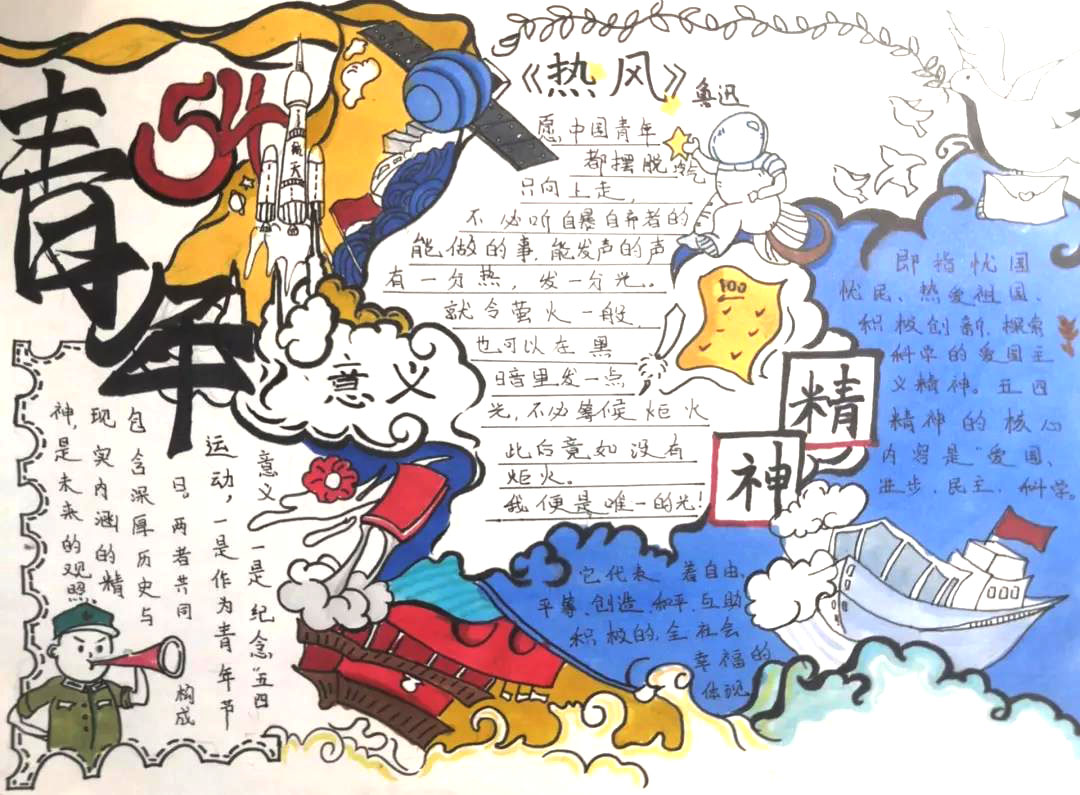 青年
54
航天
《热风》
鲁迅
愿中国青年
都摆脱冷气
只向上走，
不必听自暴自弃者的
能做的事，能发声的声
有一分热，发一分光。
就令萤火一般，
也可以在黑
暗里发一点
光，不必等候炬火
此后竟如没有
炬火。
我便是唯一的光！
100
意义
意义 一是纪念“五四
运动，一是作为青年节
日。两者共同 构成
包含深厚历史与
现实内涵的精
神，是未来的观照。
精神
即指忧国
忧民、热爱祖国、
积极创新，探索
科学的爱国主
义精神。五四
精神的核心
内容是“爱国、
进步、民主、科学。
它代表 着自由、
平等、创造、和平、互助
积极的，全社会
幸福的
体现